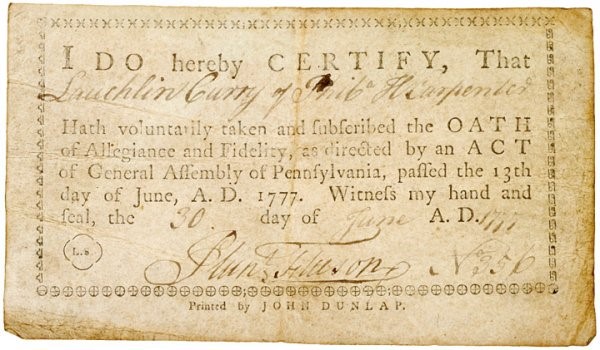 I DO hereby CERTIFY, That
Lauchlin Curry of Philᵃ H Carpenter
Hath voluntarily taken and ſubſcribed the OATH
of Allegiance and Fidelity, as directed by an ACT
of General Aſſembly of Pennſylvania, paſſed the 13th
day of June, A. D. 1777. Witneſs my hand and
ſeal, the 30 day of June A. D. 1777
L.S. Nº 356
Printed by JOHN DUNLAP.